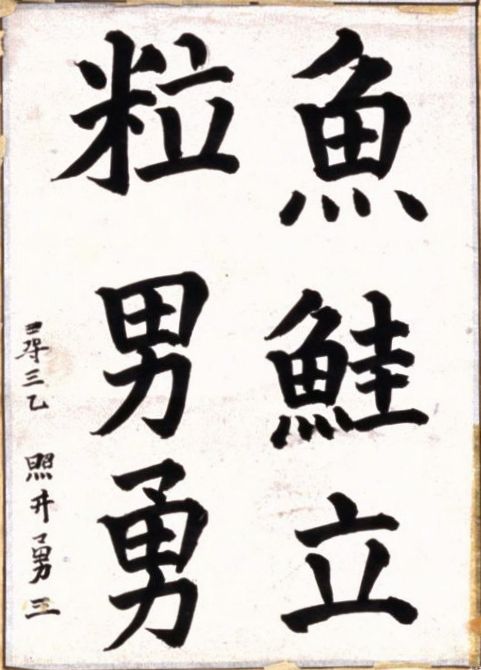 魚鮭立
粒男勇
尋三乙 照井勇三